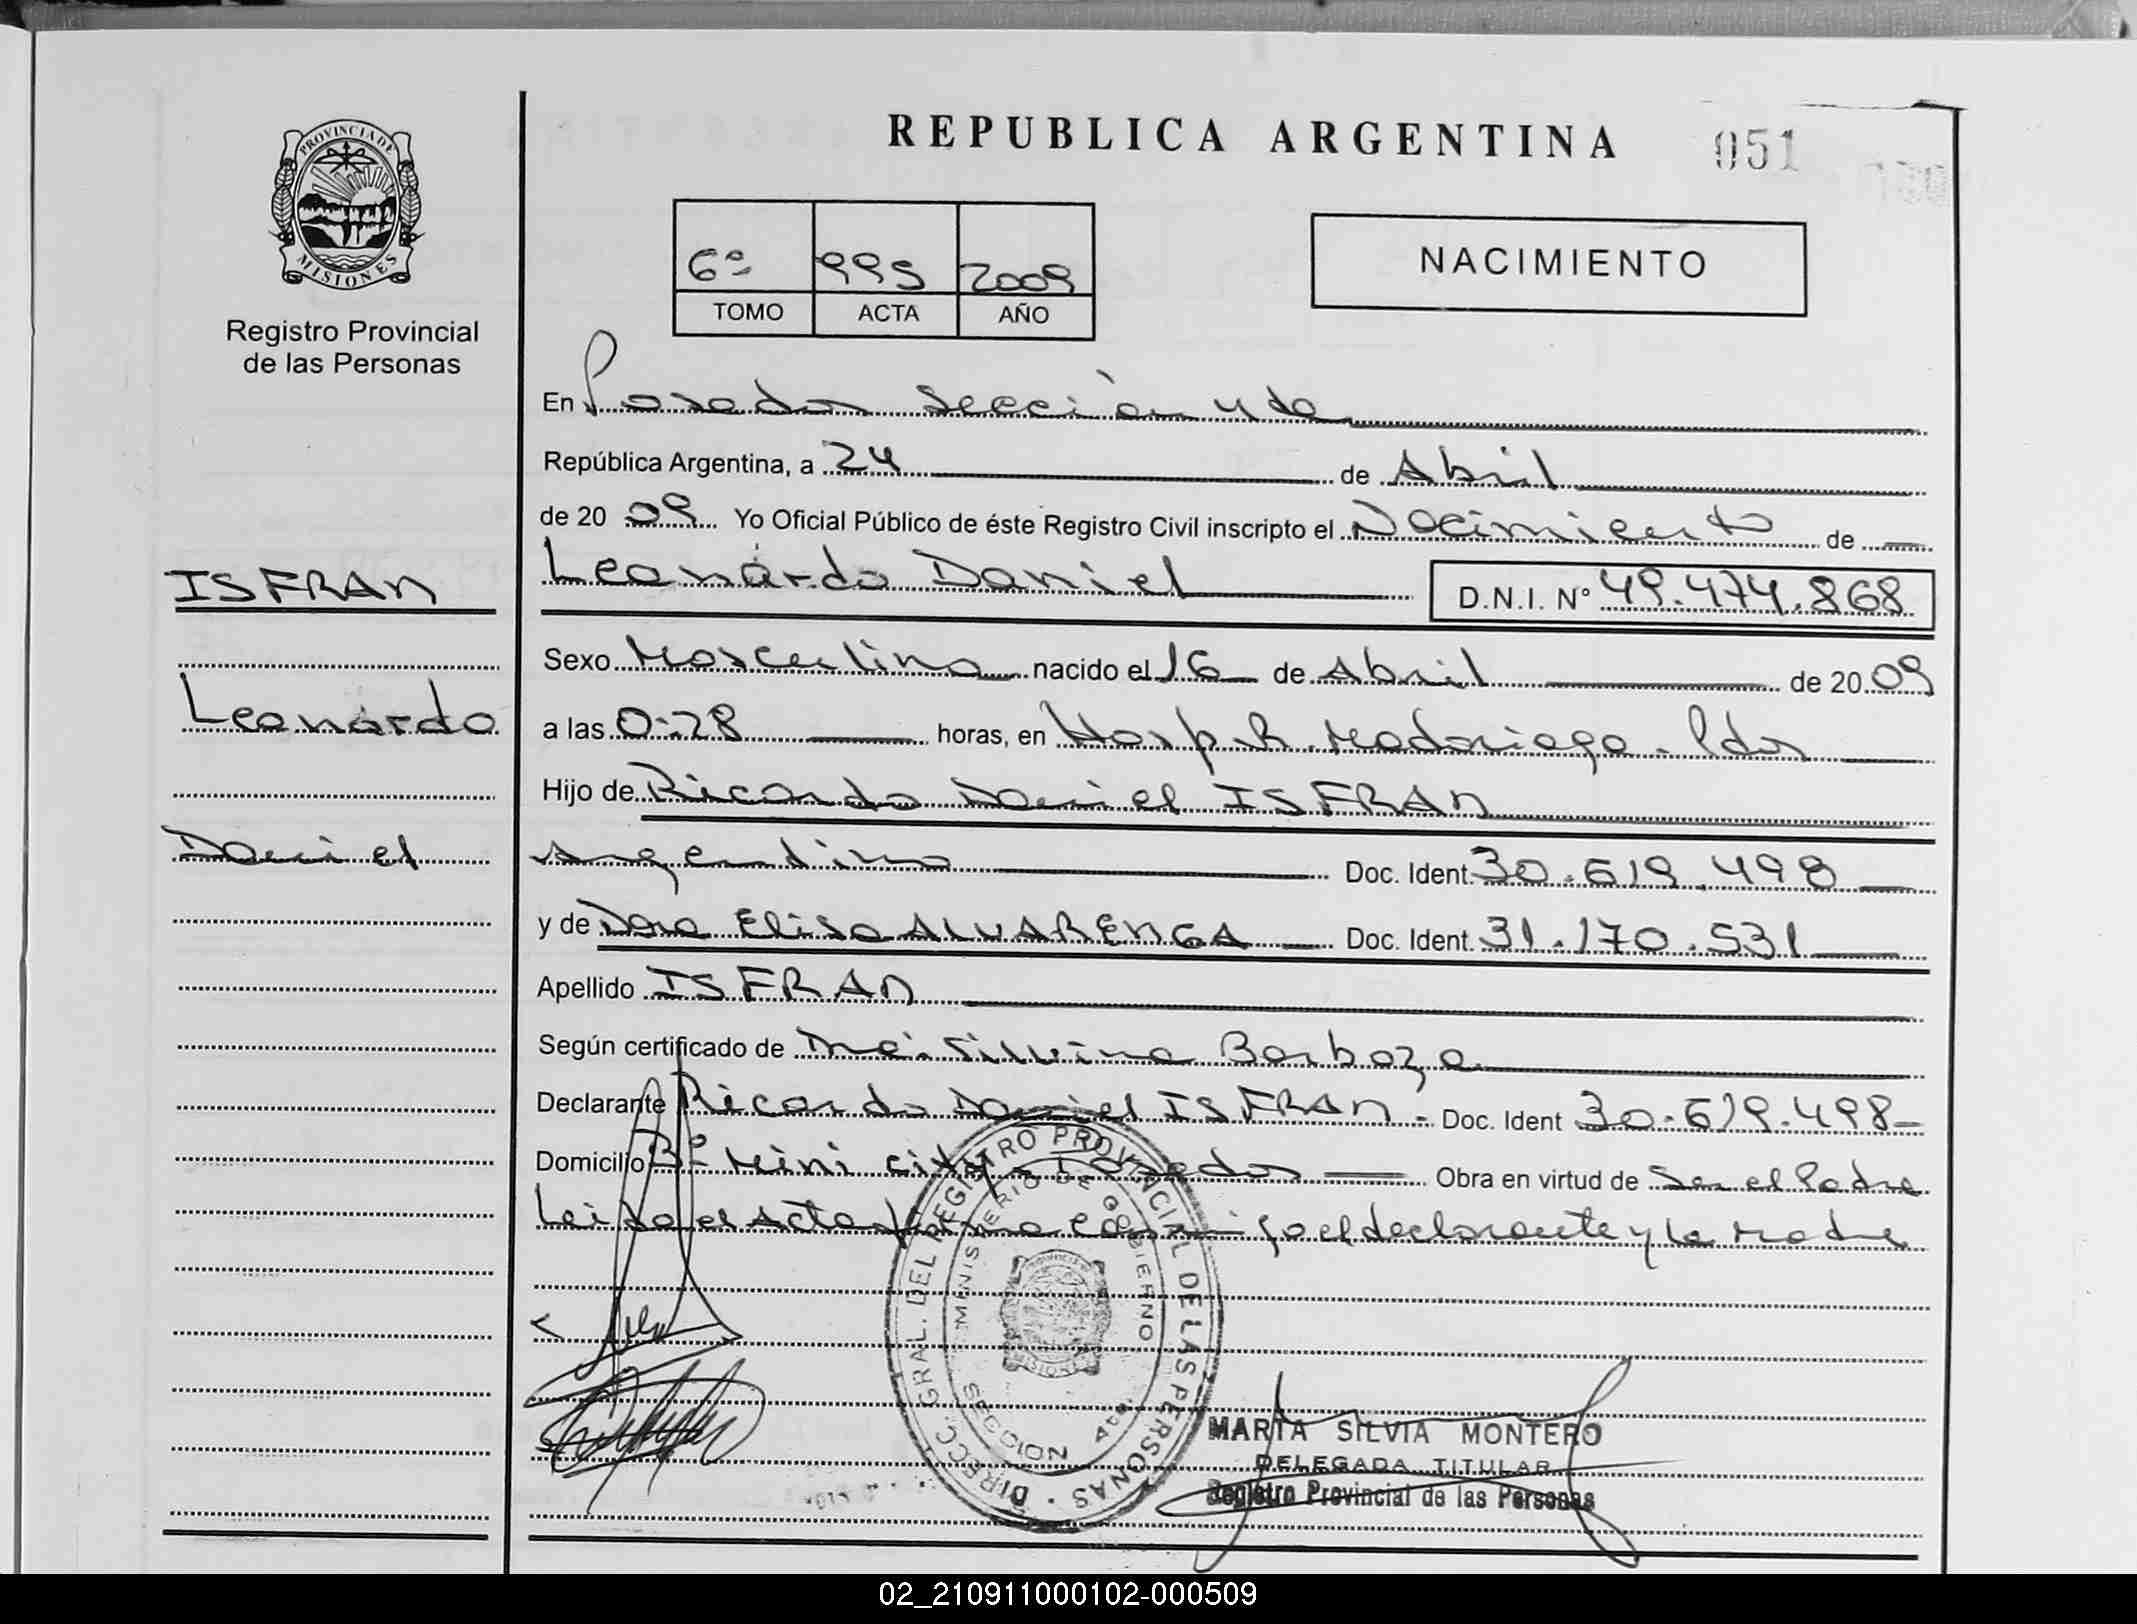 REPUBLICA ARGENTINA 051
PROVINCIA DE
MISIONES
Registro Provincial
de las Personas
6º 995 2009
TOMO ACTA AÑO
NACIMIENTO
En Posadas Sección 4ta
República Argentina, a 24 de Abril
de 2009 Yo Oficial Público de éste Registro Civil inscripto el Nacimiento de
Leonardo Daniel D.N.I. Nº 49.474.868
ISFRAN
Leonardo
Daniel
Sexo Masculino nacido el 16 de Abril de 2009
a las 0:28 horas, en Hosp. R. Madariaga - Pdas
Hijo de Ricardo Daniel ISFRAN
Argentino Doc. Ident. 30.619.498
y de Elisa ALVARENGA Doc. Ident. 31.170.531
Apellido ISFRAN
Según certificado de Silvina Barboza
Declarante Ricardo Daniel ISFRAN - Doc. Ident 30.619.498
Domicilio Bº Mini city - Posadas Obra en virtud de Ser el Padre
Leida el Acta firma conmigo el declarante y la Madre
DIRECC. GRAL. DEL REGISTRO PROVINCIAL DE LAS PERSONAS
MINISTERIO DE GOBIERNO
SECCION 4ta.
MISIONES
MARTA SILVIA MONTERO
DELEGADA TITULAR
Registro Provincial de las Personas
02_210911000102-000509